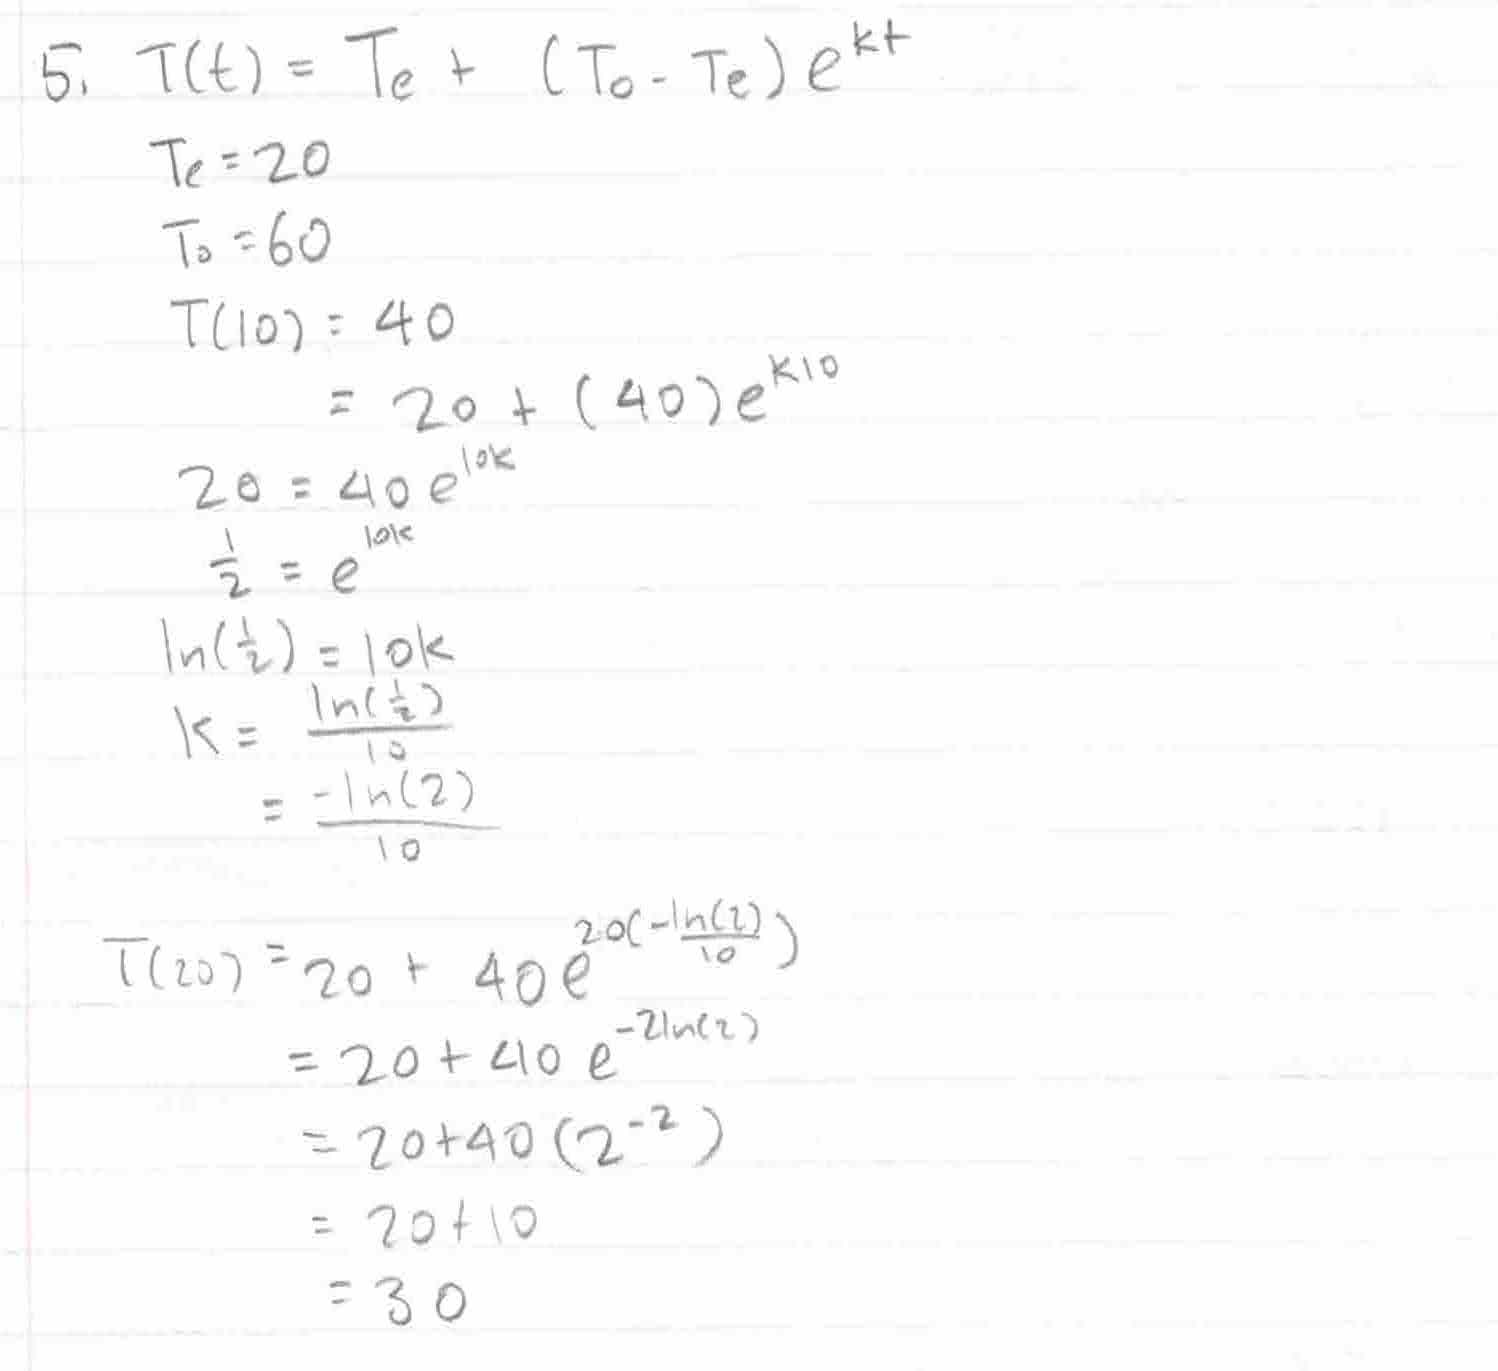 5. T(t) = Te + (T₀ - Te) e^(kt)
Te = 20
T₀ = 60
T(10) = 40
= 20 + (40) e^(k10)
20 = 40 e^(10k)
1/2 = e^(10k)
ln(1/2) = 10k
k = ln(1/2)/10
= -ln(2)/10
T(20) = 20 + 40 e^(20(-ln(2)/10))
= 20 + 40 e^(-2ln(2))
= 20 + 40 (2^(-2))
= 20 + 10
= 30